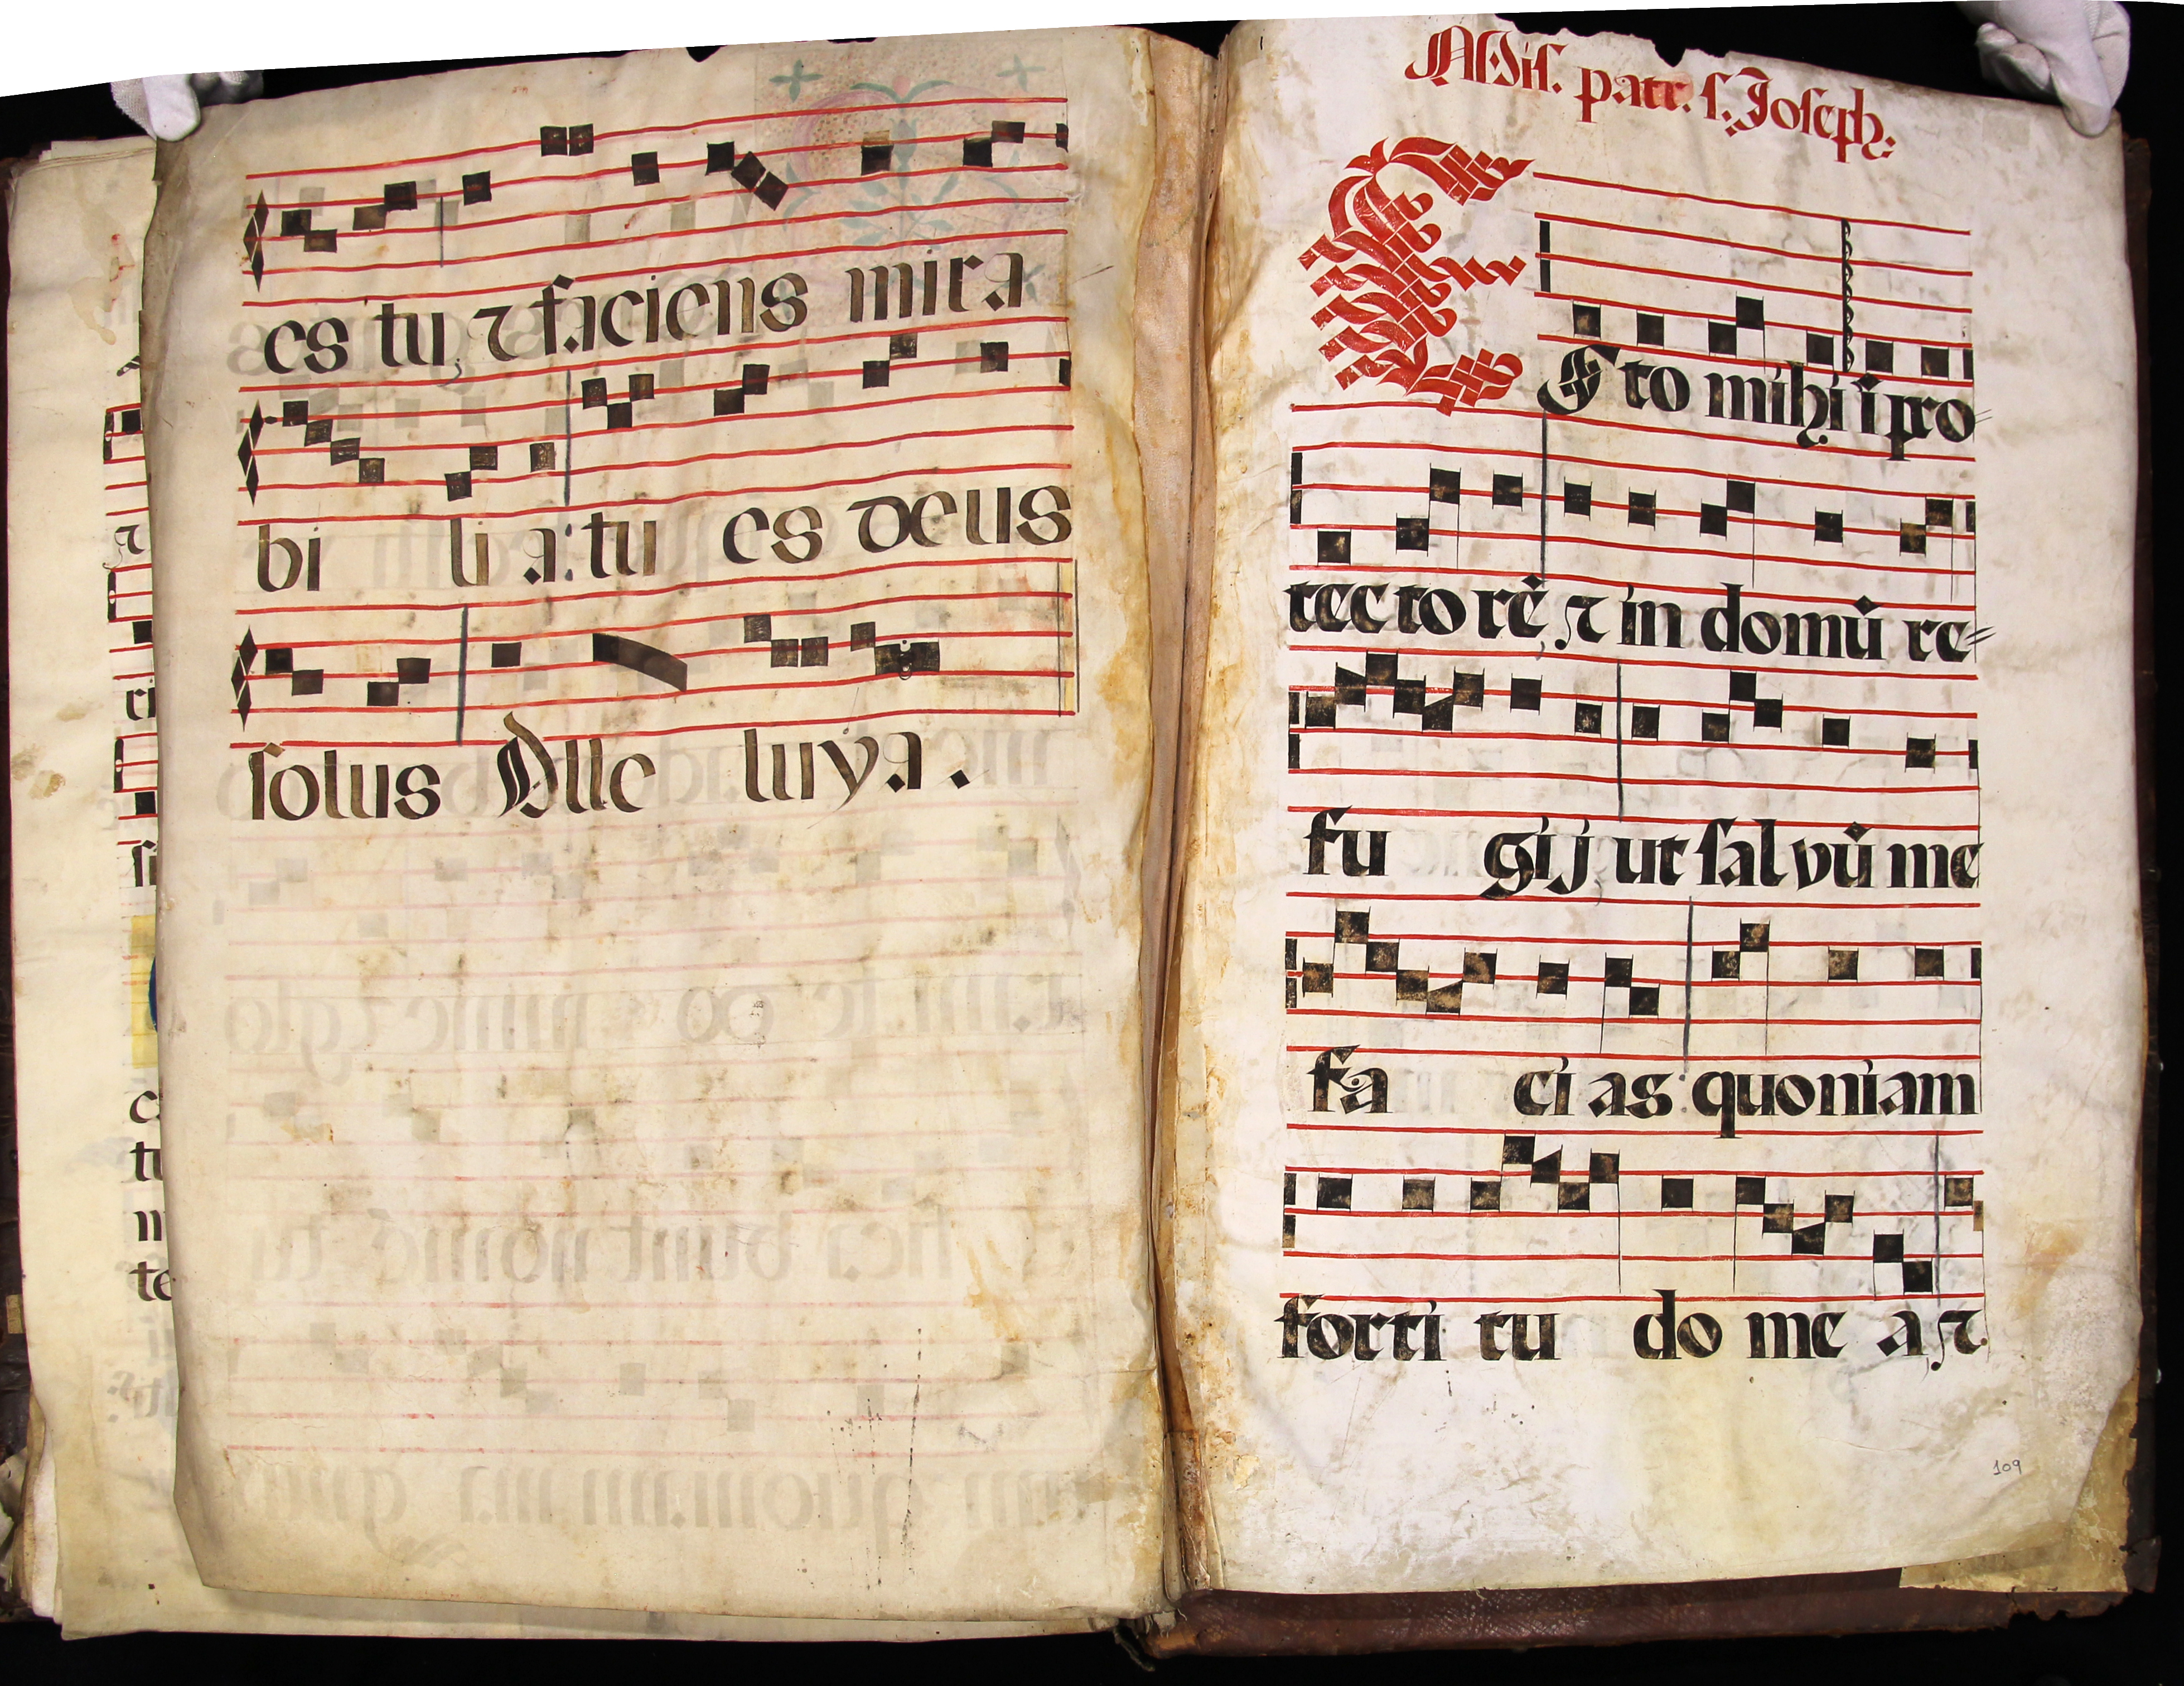 es tu, ⁊ faciens mira
bi li a: tu es deus
solus Alle luiya.
Ad Mis. patr. s. Joseph:
ESto mihi ī pro=
tec to rē, ⁊ in domū re=
fu gij ut sal vū me
fa ci as: quoniam
forti tu do me a, ⁊
109